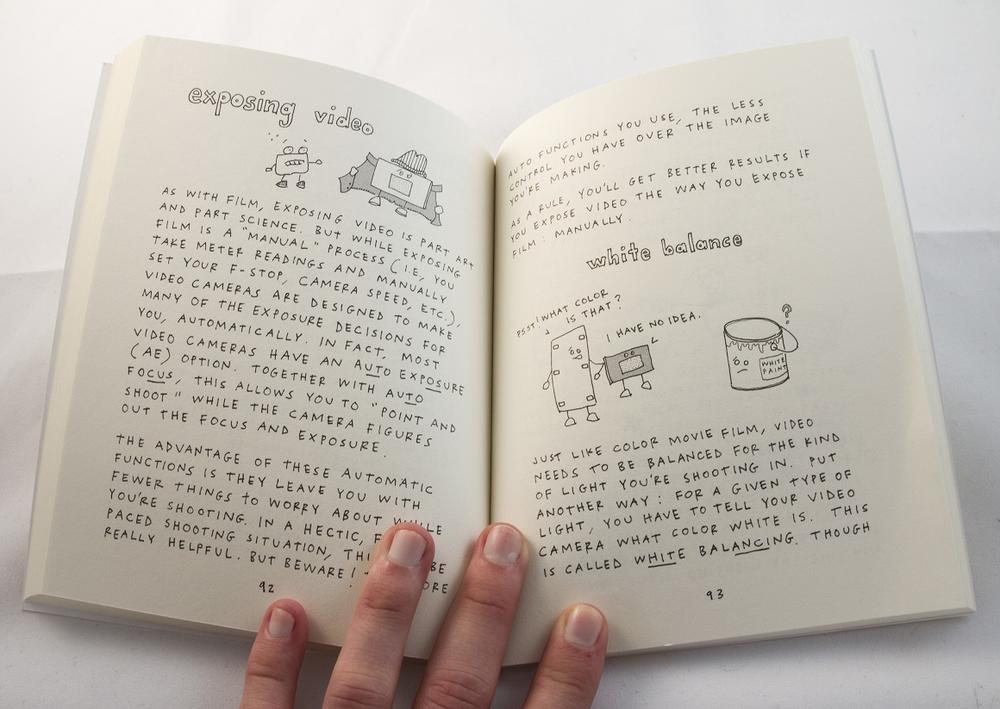 exposing video
AS WITH FILM, EXPOSING VIDEO IS PART ART
AND PART SCIENCE. BUT WHILE EXPOSING
FILM IS A "MANUAL" PROCESS (I.E, YOU
TAKE METER READINGS AND MANUALLY
SET YOUR F-STOP, CAMERA SPEED, ETC.),
VIDEO CAMERAS ARE DESIGNED TO MAKE
MANY OF THE EXPOSURE DECISIONS FOR
YOU, AUTOMATICALLY. IN FACT, MOST
VIDEO CAMERAS HAVE AN AUTO EXPOSURE
(AE) OPTION. TOGETHER WITH AUTO
FOCUS, THIS ALLOWS YOU TO "POINT AND
SHOOT" WHILE THE CAMERA FIGURES
OUT THE FOCUS AND EXPOSURE.
THE ADVANTAGE OF THESE AUTOMATIC
FUNCTIONS IS THEY LEAVE YOU WITH
FEWER THINGS TO WORRY ABOUT WHILE
YOU'RE SHOOTING. IN A HECTIC,
PACED SHOOTING SITUATION, BE
REALLY HELPFUL. BUT BEWARE!
92
AUTO FUNCTIONS YOU USE, THE LESS
CONTROL YOU HAVE OVER THE IMAGE
YOU'RE MAKING.
AS A RULE, YOU'LL GET BETTER RESULTS IF
YOU EXPOSE VIDEO THE WAY YOU EXPOSE
FILM: MANUALLY.
white balance
PSST! WHAT COLOR
IS THAT?
I HAVE NO IDEA.
?
WHITE
PAINT
JUST LIKE COLOR MOVIE FILM, VIDEO
NEEDS TO BE BALANCED FOR THE KIND
OF LIGHT YOU'RE SHOOTING IN. PUT
ANOTHER WAY: FOR A GIVEN TYPE OF
LIGHT, YOU HAVE TO TELL YOUR VIDEO
CAMERA WHAT COLOR WHITE IS. THIS
IS CALLED WHITE BALANCING. THOUGH
93